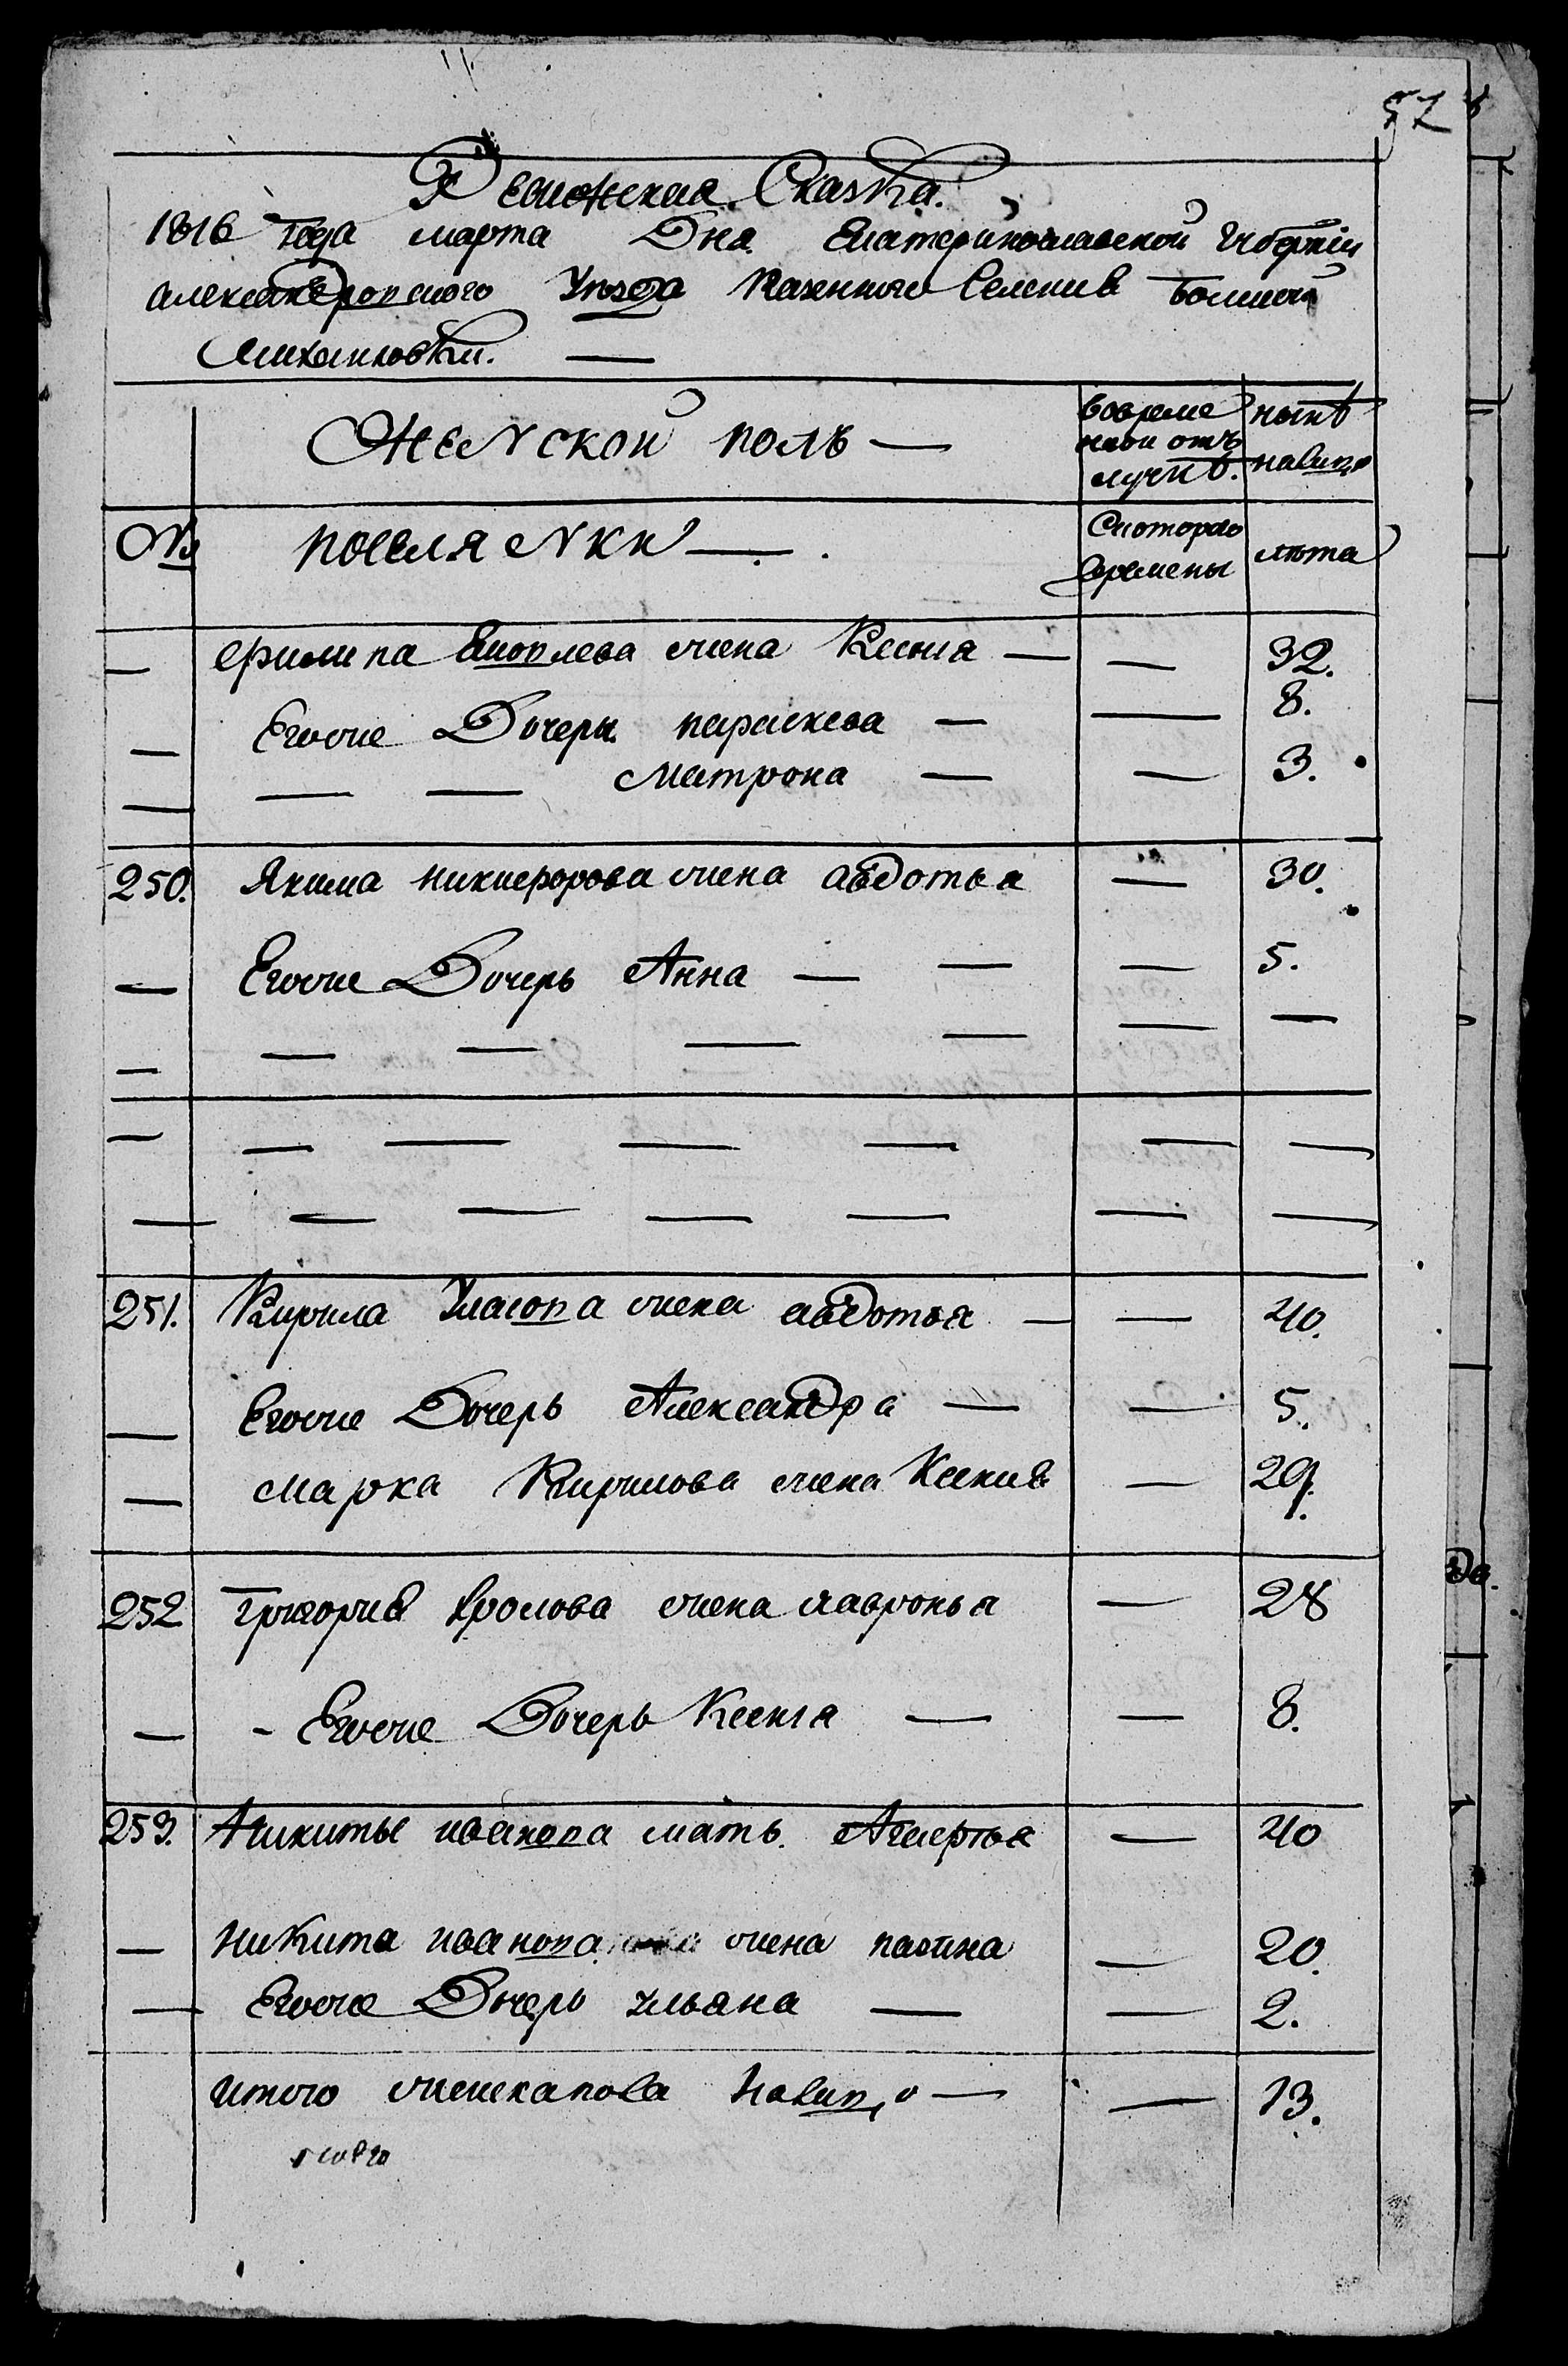 57
Ревижская Сказка.
1816 года марта Дня Екатеринославской Губернїи
александровского Уезда Казенного Селения Большой
Михаиловки. —
Женской полъ —
вовреме
нной отъ
лучкѣ.
нынѣ
налицо
№
поселянки —
Скоторого
времены
лѣта
— филипа Яковлева жена Ксенія — — 32.
— Егоже Дочери параскева — — 8.
— — — Матрона — — 3.
250. Якима никифорова жена авдотья — 30.
— Егоже Дочерь Анна — — — 5.
— — — — — — —
— — — — — — —
— — — — — — —
251. Кирила Уласова жена авдотья — — 40.
— Егоже Дочерь Александра — — 5.
— марка Кирилова жена Ксения — 29.
252 григория фролова жена лавронья — 28
— - Егоже Дочерь Ксенія — — 8.
253. Никиты иванова мать. Агаертья — 40
— никита иванова жена пастна — 20.
— Егоже Дочерь ульяна — — 2.
итого женскапола налицо — — 13.